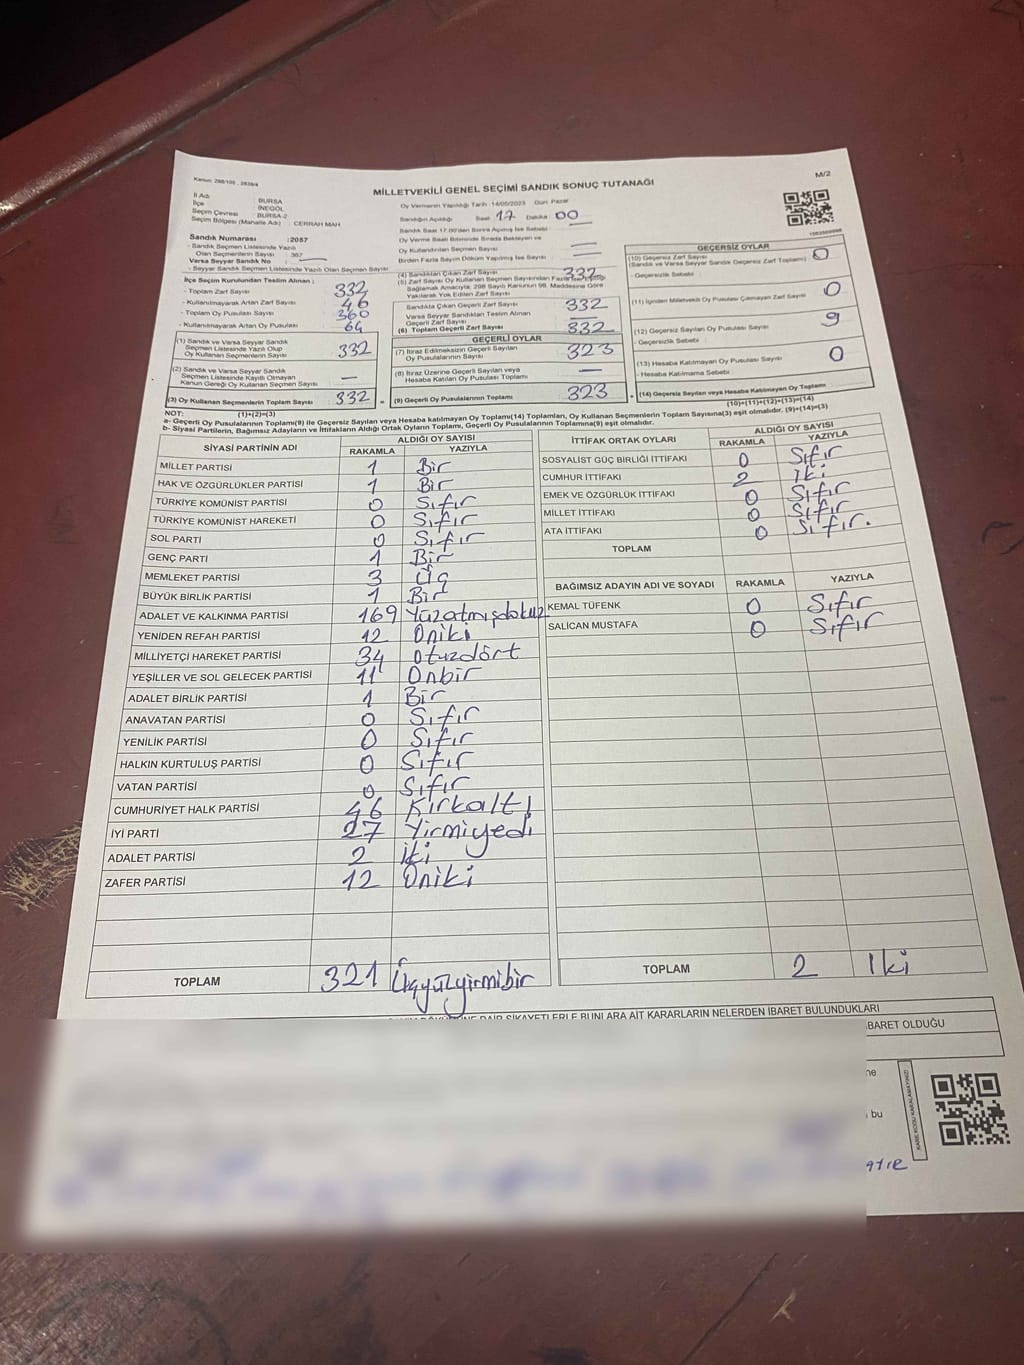 Kanun: 298/105 , 2839/4
M/2
MİLLETVEKİLİ GENEL SEÇİMİ SANDIK SONUÇ TUTANAĞI
İl Adı : BURSA
İlçe : İNEGÖL
Seçim Çevresi : BURSA-2
Seçim Bölgesi (Mahalle Adı) : CERRAH MAH
Oy Vermenin Yapıldığı Tarih :14/05/2023 Gün: Pazar
Sandığın Açıldığı Saat 17 Dakika 00
Sandık Saat 17.00'den Sonra Açılmış İse Sebebi
Oy Verme Saati Bitiminde Sırada Bekleyen ve
Oy Kullandırılan Seçmen Sayısı
Birden Fazla Sayım Döküm Yapılmış İse Sayısı
Sandık Numarası :2087
- Sandık Seçmen Listesinde Yazılı
Olan Seçmenlerin Sayısı : 367
Varsa Seyyar Sandık No :
- Seyyar Sandık Seçmen Listesinde Yazılı Olan Seçmen Sayısı
İlçe Seçim Kurulundan Teslim Alınan ;
- Toplam Zarf Sayısı 332
- Kullanılmayarak Artan Zarf Sayısı 46
- Toplam Oy Pusulası Sayısı 360
- Kullanılmayarak Artan Oy Pusulası 64
(1) Sandık ve Varsa Seyyar Sandık
Seçmen Listesinde Yazılı Olup
Oy Kullanan Seçmenlerin Sayısı 332
(2) Sandık ve Varsa Seyyar Sandık
Seçmen Listesinde Kayıtlı Olmayan
Kanun Gereği Oy Kullanan Seçmen Sayısı —
(3) Oy Kullanan Seçmenlerin Toplam Sayısı 332
(1)+(2)=(3)
(4) Sandıktan Çıkan Zarf Sayısı 332
(5) Zarf Sayısı Oy Kullanan Seçmen Sayısından Fazla İse Eşitliği
Sağlamak Amacıyla, 298 Sayılı Kanunun 98. Maddesine Göre
Yakılarak Yok Edilen Zarf Sayısı
Sandıkta Çıkan Geçerli Zarf Sayısı 332
Varsa Seyyar Sandıktan Teslim Alınan
Geçerli Zarf Sayısı
(6) Toplam Geçerli Zarf Sayısı 332
GEÇERLİ OYLAR
(7) İtiraz Edilmeksizin Geçerli Sayılan
Oy Pusulalarının Sayısı 323
(8) İtiraz Üzerine Geçerli Sayılan veya
Hesaba Katılan Oy Pusulası Toplamı —
(9) Geçerli Oy Pusulalarının Toplamı 323
GEÇERSİZ OYLAR
(10) Geçersiz Zarf Sayısı
(Sandık ve Varsa Seyyar Sandık Geçersiz Zarf Toplamı) : 0
- Geçersizlik Sebebi :
(11) İçinden Milletvekili Oy Pusulası Çıkmayan Zarf Sayısı 0
(12) Geçersiz Sayılan Oy Pusulası Sayısı 9
- Geçersizlik Sebebi :
(13) Hesaba Katılmayan Oy Pusulası Sayısı 0
- Hesaba Katılmama Sebebi :
(14) Geçersiz Sayılan veya Hesaba Katılmayan Oy Toplamı
(10)+(11)+(12)+(13)=(14)
NOT:
a- Geçerli Oy Pusulalarının Toplamı(9) ile Geçersiz Sayılan veya Hesaba katılmayan Oy Toplamı(14) Toplamları, Oy Kullanan Seçmenlerin Toplam Sayısına(3) eşit olmalıdır. (9)+(14)=(3)
b- Siyasi Partilerin, Bağımsız Adayların ve İttifakların Aldığı Ortak Oyların Toplamı, Geçerli Oy Pusulalarının Toplamına(9) eşit olmalıdır.
SİYASİ PARTİNİN ADI ALDIĞI OY SAYISI
RAKAMLA YAZIYLA
MİLLET PARTİSİ 1 Bir
HAK VE ÖZGÜRLÜKLER PARTİSİ 1 Bir
TÜRKİYE KOMÜNİST PARTİSİ 0 Sıfır
TÜRKİYE KOMÜNİST HAREKETİ 0 Sıfır
SOL PARTİ 0 Sıfır
GENÇ PARTİ 1 Bir
MEMLEKET PARTİSİ 3 Üç
BÜYÜK BİRLİK PARTİSİ 1 Bir
ADALET VE KALKINMA PARTİSİ 169 Yüzatmışdokuz
YENİDEN REFAH PARTİSİ 12 Oniki
MİLLİYETÇİ HAREKET PARTİSİ 34 Otuzdört
YEŞİLLER VE SOL GELECEK PARTİSİ 11 Onbir
ADALET BİRLİK PARTİSİ 1 Bir
ANAVATAN PARTİSİ 0 Sıfır
YENİLİK PARTİSİ 0 Sıfır
HALKIN KURTULUŞ PARTİSİ 0 Sıfır
VATAN PARTİSİ 0 Sıfır
CUMHURİYET HALK PARTİSİ 46 Kırkaltı
İYİ PARTİ 27 Yirmiyedi
ADALET PARTİSİ 2 İki
ZAFER PARTİSİ 12 Oniki
TOPLAM 321 Üçyüzyirmibir
İTTİFAK ORTAK OYLARI ALDIĞI OY SAYISI
RAKAMLA YAZIYLA
SOSYALİST GÜÇ BİRLİĞİ İTTİFAKI 0 Sıfır
CUMHUR İTTİFAKI 2 İki
EMEK VE ÖZGÜRLÜK İTTİFAKI 0 Sıfır
MİLLET İTTİFAKI 0 Sıfır
ATA İTTİFAKI 0 Sıfır.
TOPLAM
BAĞIMSIZ ADAYIN ADI VE SOYADI RAKAMLA YAZIYLA
KEMAL TÜFENK 0 Sıfır
SALİCAN MUSTAFA 0 Sıfır
TOPLAM 2 İki
DAİR ŞİKAYETLERLE BUNLARA AİT KARARLARIN NELERDEN İBARET BULUNDUKLARI
İBARET OLDUĞU
bu